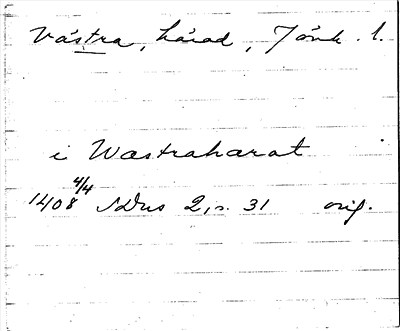 Västra, härad, Jönk. l.
i Wastraharat
1408 4/4 SDns 2, s. 31 orig.